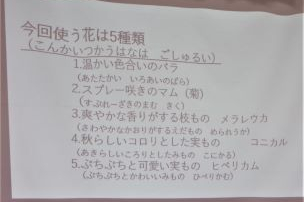 今回使う花は5種類
(こんかいつかうはなは ごしゅるい)
1.温かい色合いのバラ
(あたたかい いろあいのばら)
2.スプレー咲きのマム(菊)
(すぷれーざきのまむ きく)
3.爽やかな香りがする枝もの メラレウカ
(さわやかなかおりがするえだもの められうか)
4.秋らしいコロリとした実もの コニカル
(あきらしいころりとしたみもの こにかる)
5.ぷちぷちと可愛い実もの ヒペリカム
(ぷちぷちとかわいいみもの ひぺりかむ)